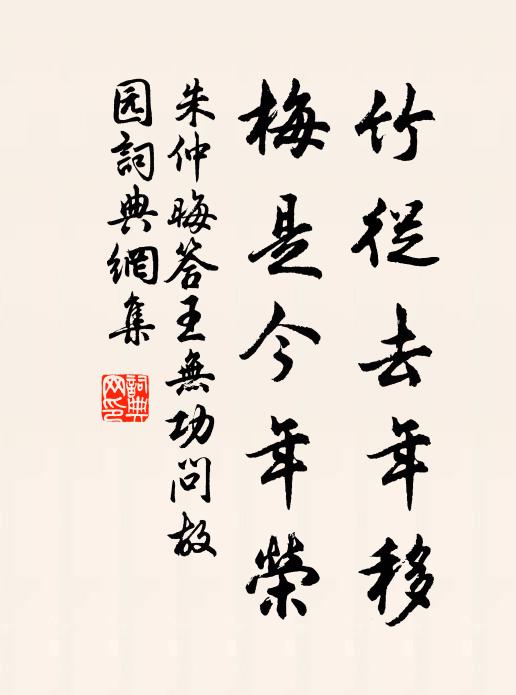 竹從去年移
梅是今年榮
朱仲晦答王無功問故
园詞典網集
詞典
网印